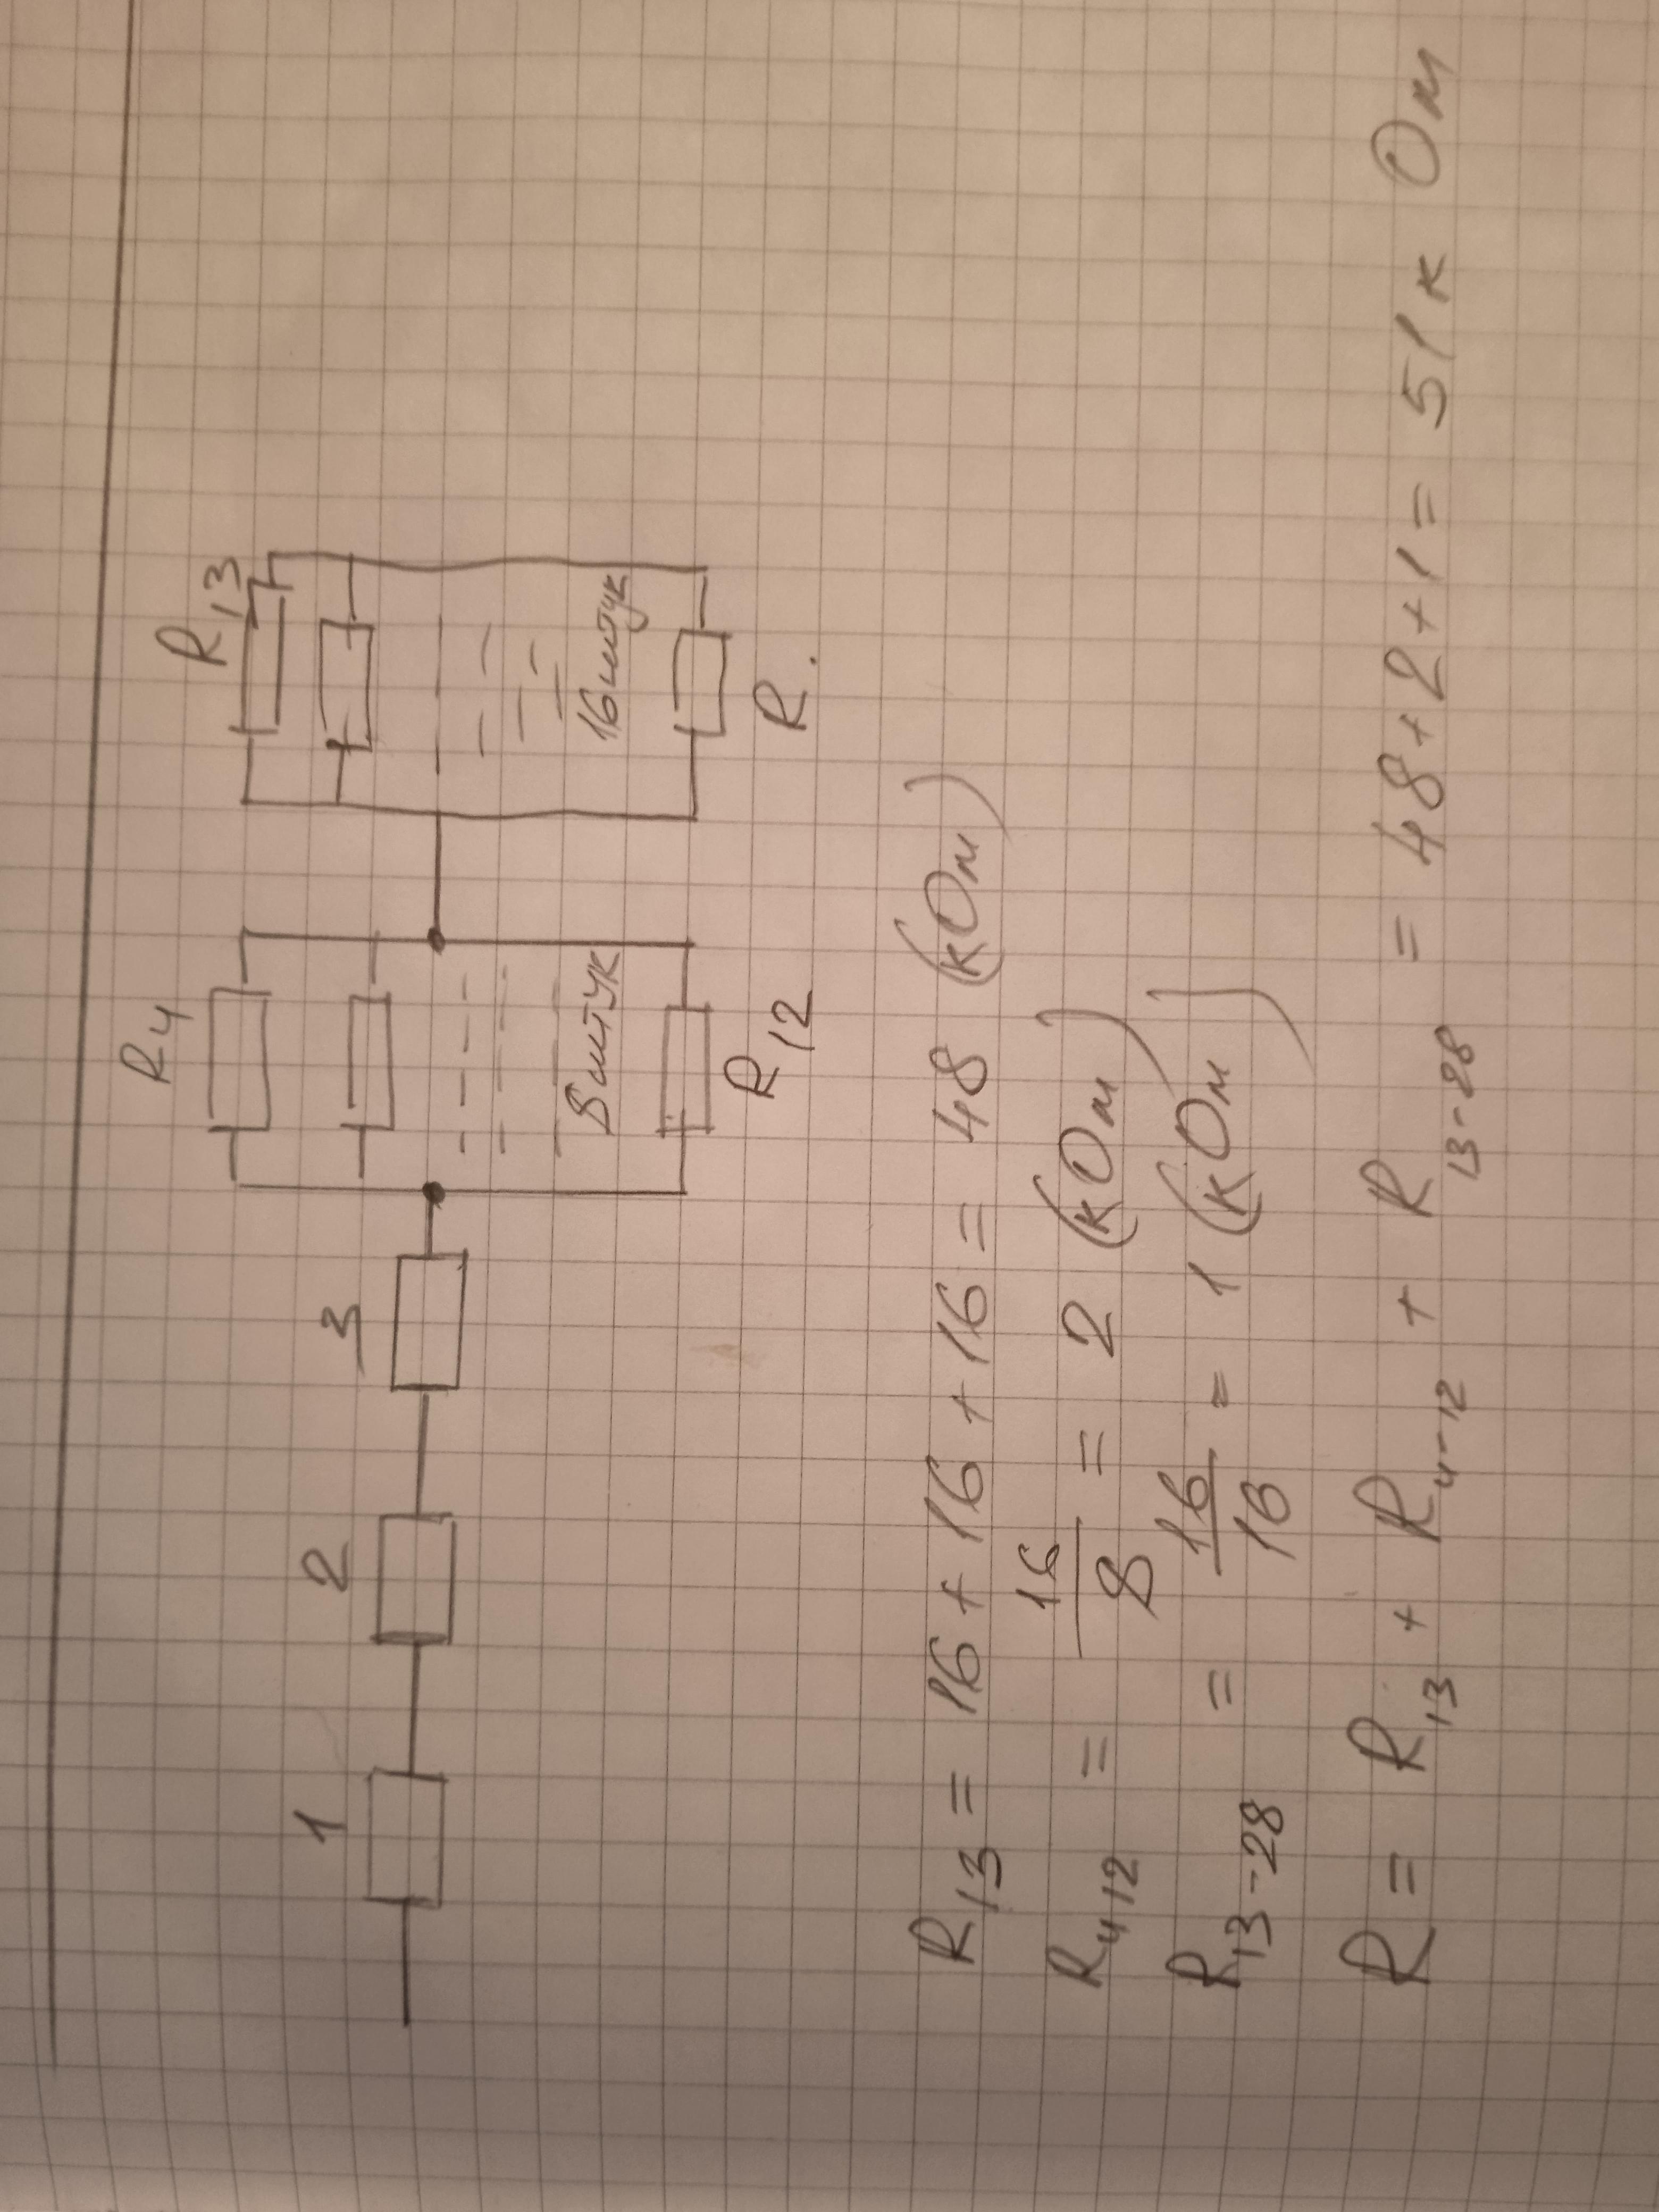 1 2 3 R4 R13
8 штук 16 штук
R12 R.
R13 = 16 + 16 + 16 = 48 (кОм)
R412 = 16/8 = 2 (кОм)
R13-28 = 16/16 = 1 (кОм)
R = R13 + R4-12 + R13-28 = 48 + 2 + 1 = 51 к Ом